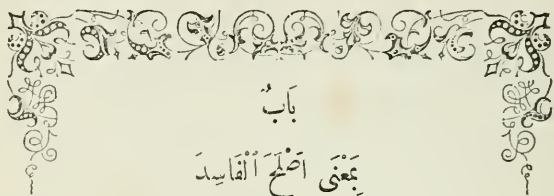 بَابٌ
بِمَعْنَى اَصْلَحَ ٱلْفَاسِدَ